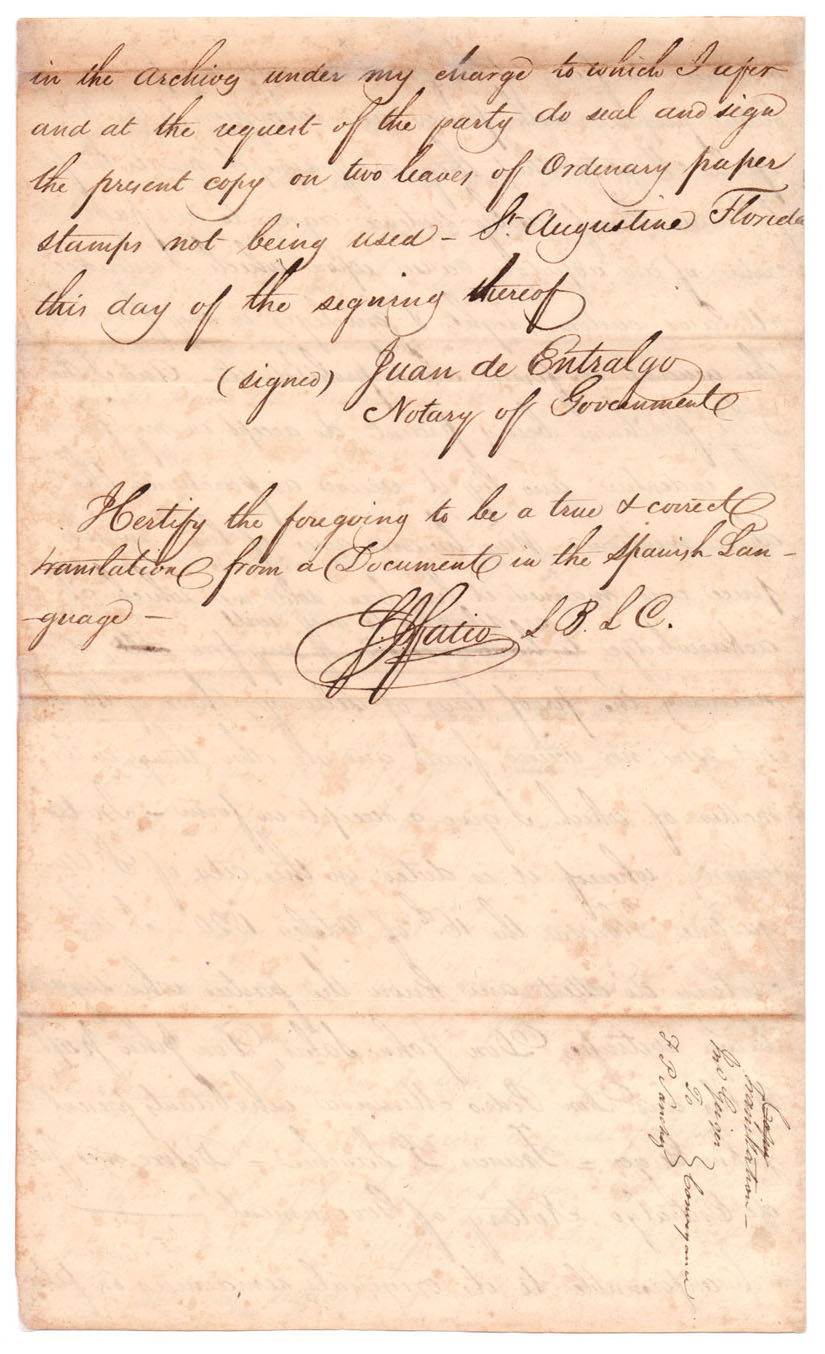 in the Archives under my charge to which I refer
and at the request of the party do seal and sign
the present copy on two leaves of Ordenary paper
stamps not being used – St. Augustine Florida
this day of the signing thereof
(signed) Juan de Entralgo
Notary of Government
I Certify the foregoing to be a true & correct
translation from a Document in the Spanish Lan-
-guage –
F J Fatio S B L C.
Translation –
Geiger
To } Conveyance
F P Sanchez